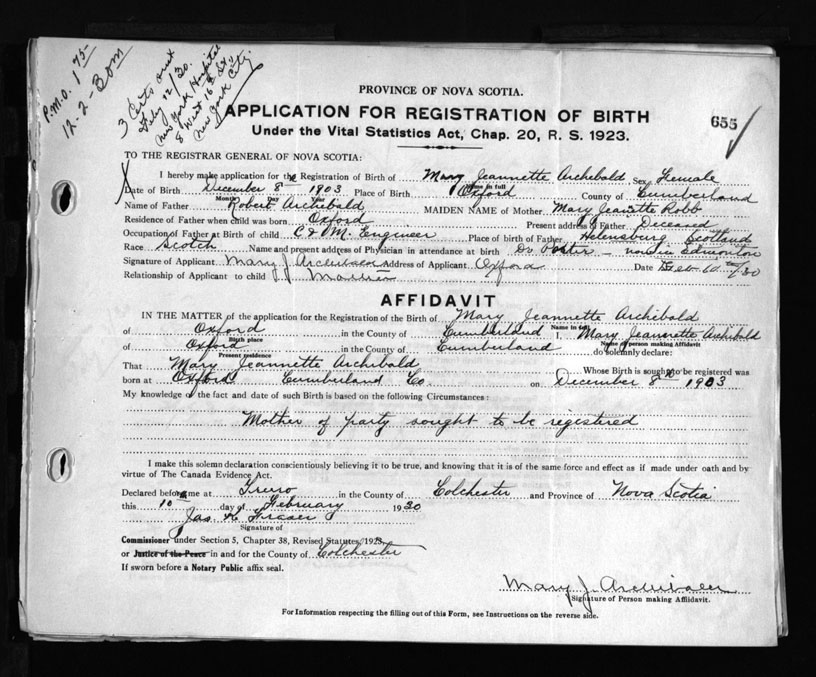 P.M.O. 1 75
12-2-30 M
3 Certs sent
Feby 12/30.
New York Hospital
8 West 16th St.,
New York City.
PROVINCE OF NOVA SCOTIA.
APPLICATION FOR REGISTRATION OF BIRTH
655
Under the Vital Statistics Act, Chap. 20, R. S. 1923.
TO THE REGISTRAR GENERAL OF NOVA SCOTIA:
I hereby make application for the Registration of Birth of Mary Jeannette Archibald Sex Female
Name in full
Date of Birth December 8th 1903 Place of Birth Oxford County of Cumberland
Month Day Year
Name of Father Robert Archibald MAIDEN NAME of Mother Mary Jeanette Robb
Residence of Father when child was born Oxford Present address of Father Deceased
Occupation of Father at Birth of child C & M. Engineer Place of birth of Father Helensburg, Scotland
Race Scotch Name and present address of Physician in attendance at birth Dr - now in Edmonton
Signature of Applicant Mary J. Archibald Address of Applicant Oxford Date Feb 10th/30
Relationship of Applicant to child Mother
AFFIDAVIT
IN THE MATTER of the application for the Registration of the Birth of Mary Jeannette Archibald
Name in full
of Oxford in the County of Cumberland I, Mary Jeannette Archibald
Birth place Name of person making Affidavit
of Oxford in the County of Cumberland do solemnly declare:
Present residence
That Mary Jeannette Archibald Whose Birth is sought to be registered was
born at Oxford Cumberland Co on December 8th 1903
My knowledge of the fact and date of such Birth is based on the following Circumstances:
Mother of party sought to be registered
I make this solemn declaration conscientiously believing it to be true, and knowing that it is of the same force and effect as if made under oath and by
virtue of The Canada Evidence Act.
Declared before me at Truro in the County of Colchester and Province of Nova Scotia
this 10th day of February 1930
Jas.
Signature of
Commissioner under Section 5, Chapter 38, Revised Statutes, 1923.
or Justice of the Peace in and for the County of Colchester
If sworn before a Notary Public affix seal.
Mary J. Archibald
Signature of Person making Affidavit.
For Information respecting the filling out of this Form, see Instructions on the reverse side.